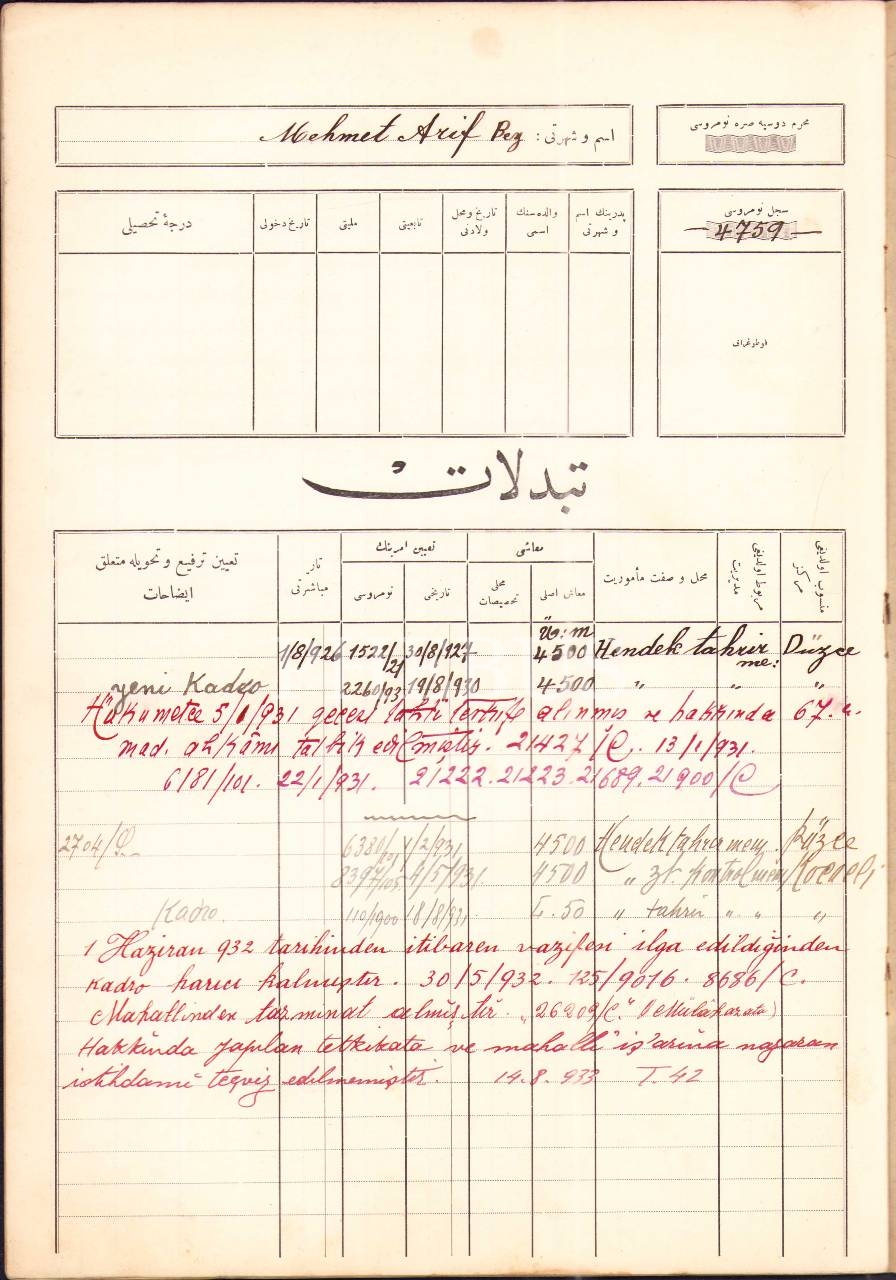 محرم دوسیه صره نومروسی
اسم و شهرتی : Mehmet Arif Bey
سجل نومروسی
4759
فوطوغرافی
پدرینك اسم و شهرتی
والده‌سنك اسمی
تاریخ و محل ولادتی
تابعیتی
ملیتی
تاریخ دخولی
درجهٔ تحصیلی
تبدلات
منسوب اولدیغی مركز
مربوط اولدیغی مدیریت
محل و صفت مأموریت
معاشی
معاش اصلی
محلی تخصیصات
تعیین امرینك
تاریخی
نومروسی
تار مباشرتی
تعیین ترفیع و تحویله متعلق ایضاحات
1/8/926 1522/21 30/8/927 4500 Hendek tahrir me: Düzce
yeni Kadro 2260/93 19/8/930 4500 " " "
Hükümetce 5/1/931 alınmış ve hakkında 67.
mad. ahkâmı tatbik edilmiştir. 21427/C. 13/1/931.
6181/101. 22/1/931. 21222. 21223. 21689. 21900/C
2704/ 6380/101 1/2/931 4500 Hendek tahrir mem. Düzce
8397/105 4/5/931 4500 " Kontrol mem Kocaeli
Kadro 110/1900 18/8/931 L. 50 " tahrir " " "
1 Haziran 932 tarihinden itibaren vazifesi ilga edildiğinden
kadro harici kalmıştır. 30/5/932. 125/9016. 8686/C.
Mahallinden tazminat almıştır. "26209/C." (Mülâhazata)
Hakkında yapılan tetkikata ve mahalli iş'arına nazaran
istihdamı tecviz edilmemiştir. 14.8.933 T.42